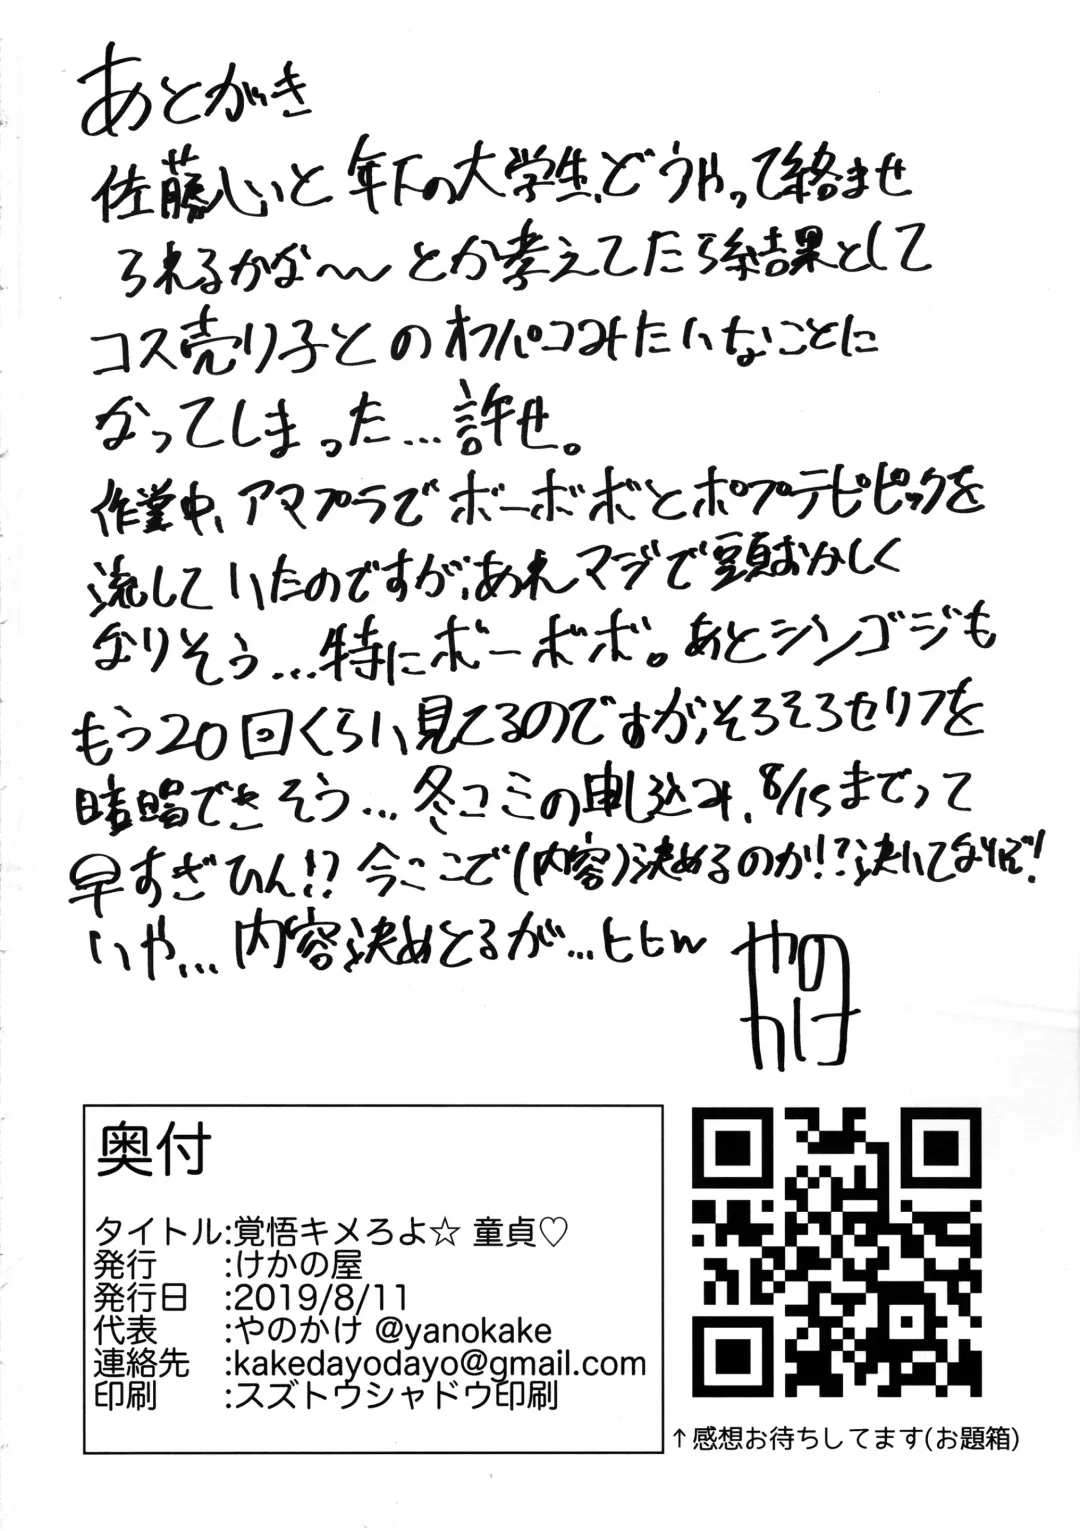 あとがき
佐藤しいと年下の大学生、どうやって絡ませ
られるかな〜〜とか考えてたら結果として
コス売り子とのオフパコみたいなことに
なってしまった…許せ。
作業中、アマプラでボーボボとポプテピピックを
流していたのですが、あれマジで頭おかしく
なりそう…特にボーボボ。あとシンゴジも
もう20回くらい見てるのですが、そろそろセリフを
暗唱できそう…冬コミの申し込み、8/15までって
早すぎひん!?今ここで(内容)決めるのか!?決めてないぞ!
いや…内容決めとるが…ヒヒw
やの
かけ
奥付
タイトル:覚悟キメろよ☆ 童貞♡
発行 :けかの屋
発行日 :2019/8/11
代表 :やのかけ @yanokake
連絡先 :kakedayodayo@gmail.com
印刷 :スズトウシャドウ印刷
↑感想お待ちしてます(お題箱)